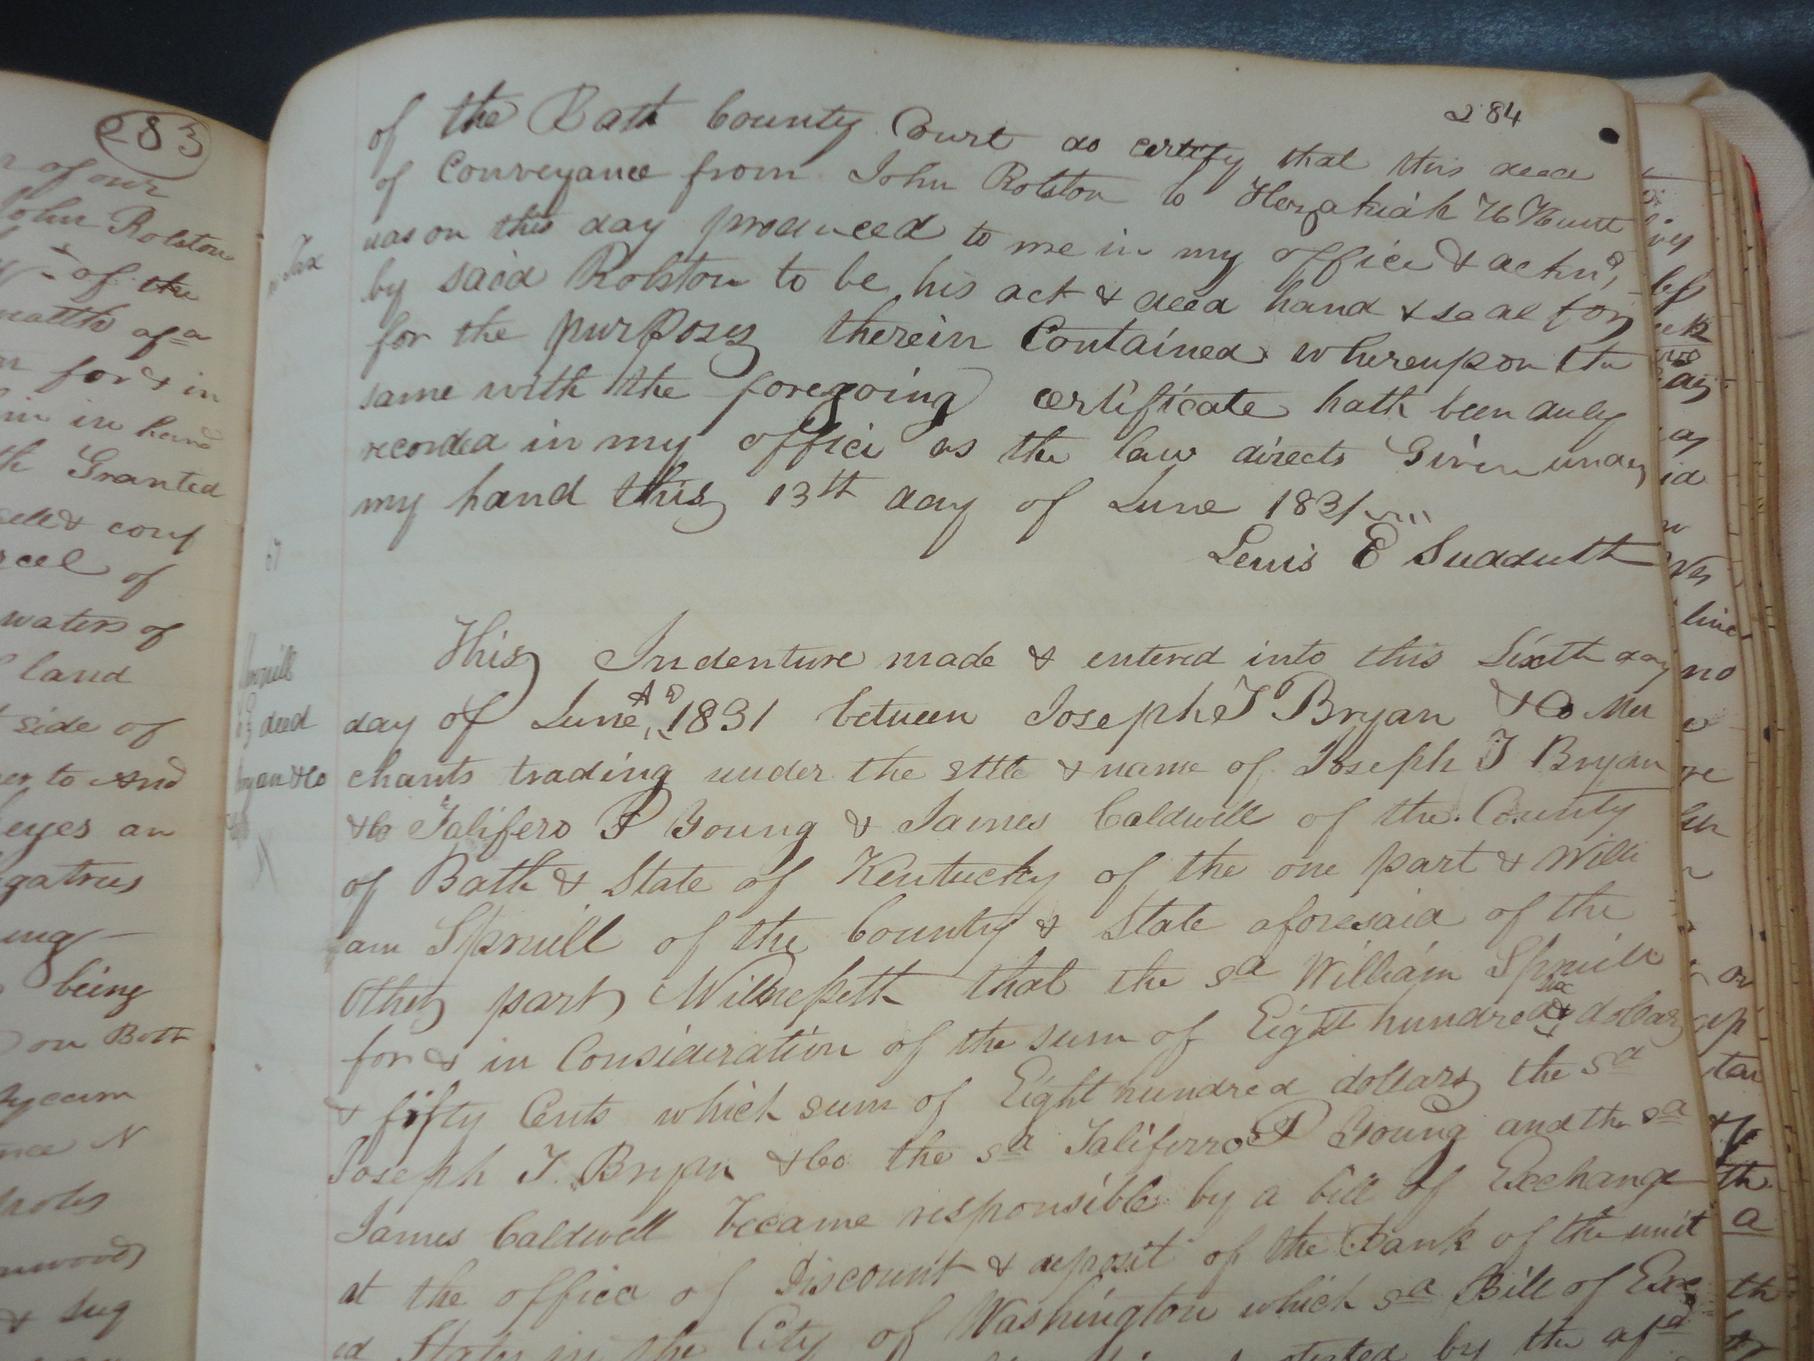 283
of our
John Rolston
of the
wealth of a
for & in
him in hand
th Granted
sell & conf
rcel of
waters of
land
side of
er to And
eyes an
gatrees
ing
being
on Both
Sycam
nce N
Poles
nwood
& Sug
284
of the Bath County Court do certify that this deed
of Conveyance from John Rolston to Hezakiah
was on this day produced to me in my office & acknd,
by said Rolston to be his act & deed hand & seal for
for the purposes therein Contained whereupon the
same with the foregoing certificate hath been duly
recorded in my office as the law directs Given under
my hand this 13th day of June 1831
Lewis E Sudduth
Tax
This Indenture made & entered into this Sixth day
day of June AD 1831 between Joseph T Bryan & Co Mer
chants trading under the stile & name of Joseph T Bryan
& Co Talifero P Young & James Caldwell of the County
of Bath & State of Kentucky of the one part & Willi
am Spruill of the County & State aforesaid of the
Other part Witnesseth that the sd William Spruill
for & in Consideration of the sum of Eight hundred & six dollars
& fifty Cents which sum of Eight hundred dollars the sd
Joseph T. Bryan & Co the sd Taliferro P Young and the sd
James Caldwell became responsible by a bill of Exchange
at the office of Discount & deposit of the Bank of the unit
ed States in the City of Washington which sd Bill of Exc
by the afd
pruill
deed
Bryan & Co